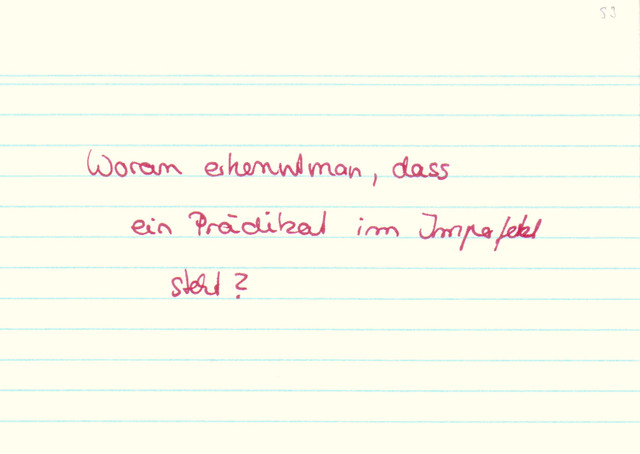 53
Woran erkennt man, dass
ein Prädikat im Imperfekt
steht?